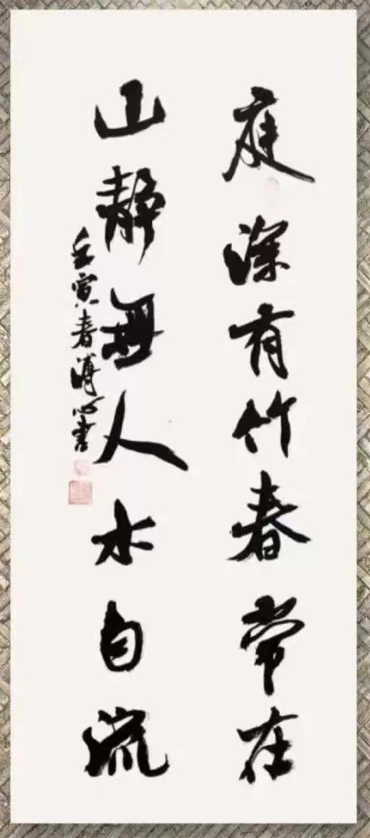 庭深有竹春常在
山静無人水自流
壬寅春溥心書